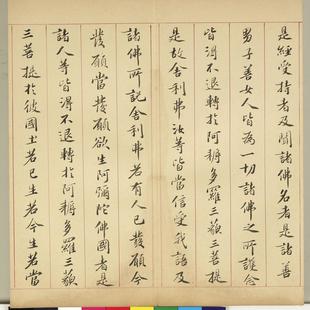 是經受持者及聞諸佛名者是諸善
男子善女人皆為一切諸佛之所護念
皆得不退轉於阿耨多羅三藐三菩提
是故舍利弗汝等皆當信受我語及
諸佛所說舍利弗若有人已發願今
發願當發願欲生阿彌陀佛國者是
諸人等皆得不退轉於阿耨多羅三藐
三菩提於彼國土若已生若今生若當